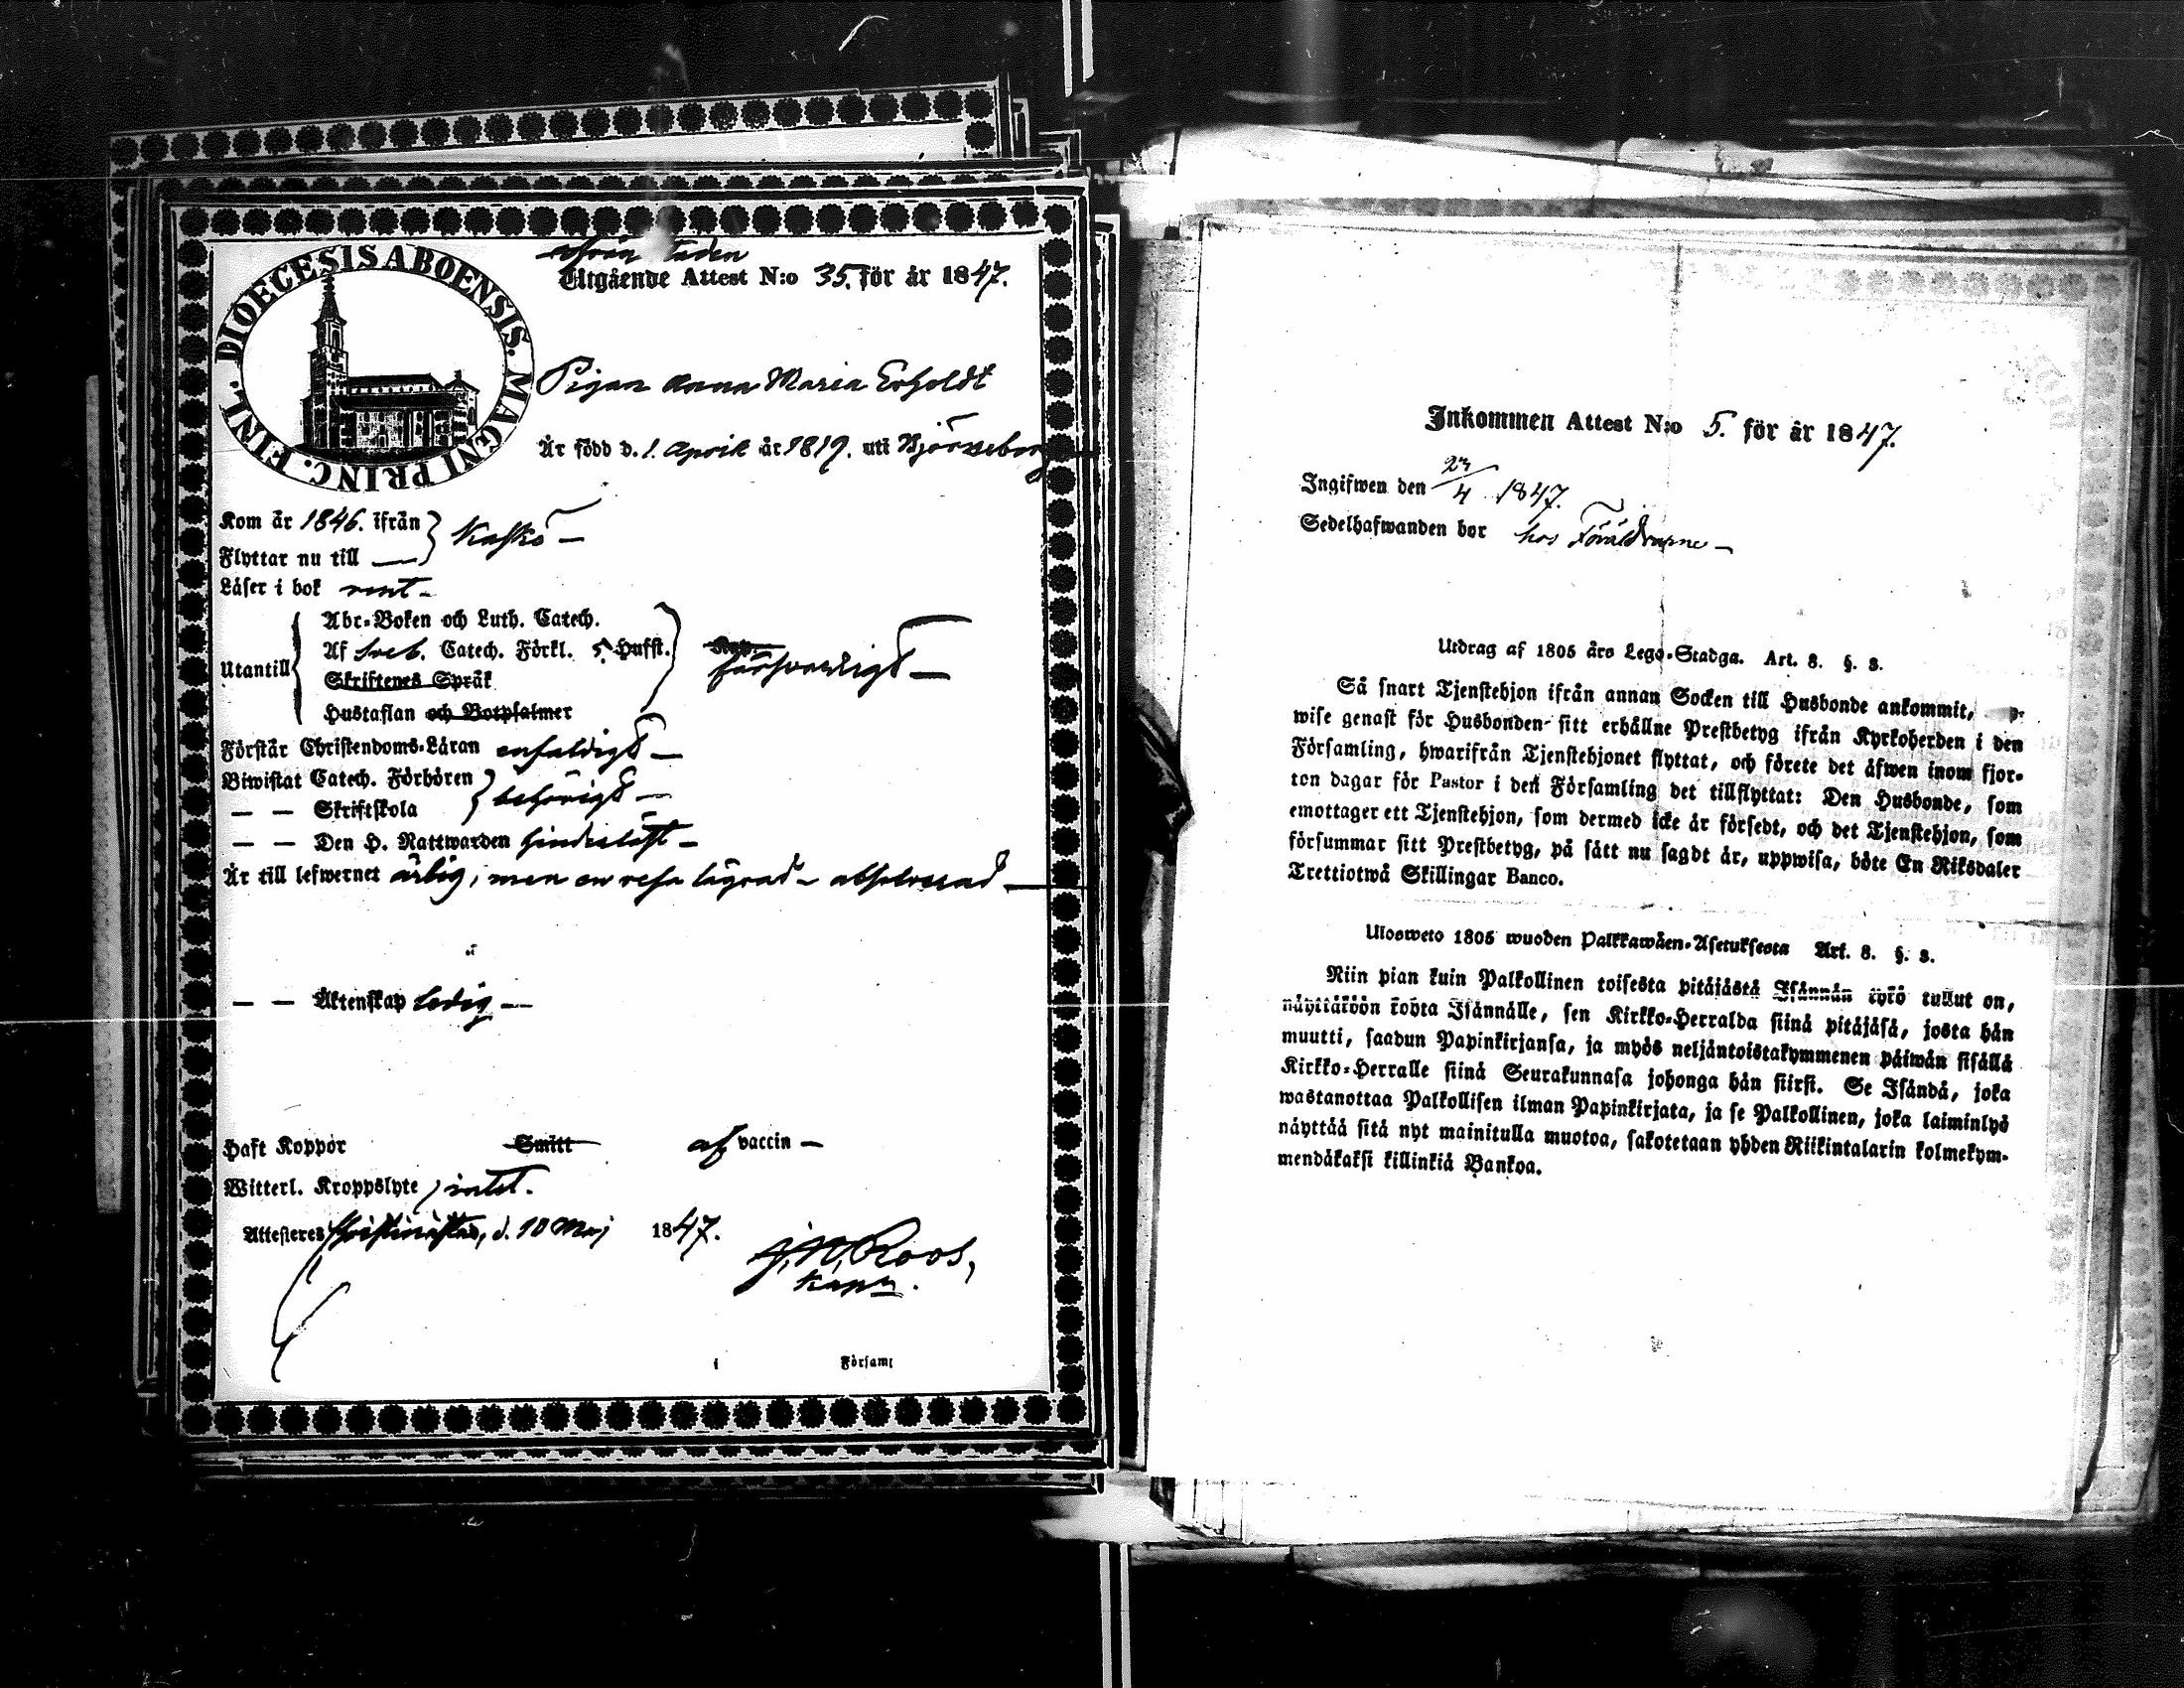 DIOECESIS ABOENSIS. MAGNI PRINC. FINL.
ifrån staden
Utgående Attest N:o 35. för år 1847.
Pigan Anna Maria Erholdt
Är född d. 1. April år 1819. uti Björneborg
Kom år 1846. ifrån } Kaskö —
Flyttar nu till —
Läser i bok rent —
Utantill
Abc-Boken och Luth. Catech.
Af Sveb. Catech. Förkl. 5. Hufst.
Skriftenes Språk
Hustaflan och Botpsalmer
försvarligt —
Förstår Christendoms-Läran enfaldigt —
Biwistat Catech. Förhören } behörigt —
— — Skriftskola
— — Den H. Nattwarden hinderlöst —
Är till lefwernet ärlig, men en resa lägrad — absolverad —
— — Äktenskap ledig —
Haft Koppor Smitt af vaccin —
Witterl. Kroppslyte, intet.
Attesteras Christinæstad, d. 10 Maj 1847.
J. N. Roos,
Kapn.
i Församl
Inkommen Attest N:o 5. för år 1847.
Ingifwen den 23/4 1847.
Sedelhafwanden bor hos Föräldrarne —
Utdrag af 1805 års Lego-Stadga. Art. 8. §. 3.
Så snart Tjenstehjon ifrån annan Socken till Husbonde ankommit,
wise genast för Husbonden sitt erhållne Prestbetyg ifrån Kyrkoherden i den
Församling, hwarifrån Tjenstehjonet flyttat, och förete det äfwen inom fjor-
ton dagar för Pastor i den Församling det tillflyttat: Den Husbonde, som
emottager ett Tjenstehjon, som dermed icke är försedt, och det Tjenstehjon, som
försummar sitt Prestbetyg, på sätt nu sagdt är, uppwisa, böte En Riksdaler
Trettiotwå Skillingar Banco.
Ulosweto 1805 wuoden Palkkawäen-Asetuksesta Art. 8. §. 3.
Niin pian kuin Palkollinen toisesta pitäjästä Isännän työ tullut on,
näyttäköön kohta Isännälle, sen Kirkko-Herralda siinä pitäjäsä, josta hän
muutti, saadun Papinkirjansa, ja myös neljäntoistakymmenen päiwän sisällä
Kirkko-Herralle siinä Seurakunnasa johonga hän siirsi. Se Isändä, joka
wastanottaa Palkollisen ilman Papinkirjata, ja se Palkollinen, joka laiminlyö
näyttää sitä nyt mainitulla muotoa, sakotetaan yhden Riikintalarin kolmekym-
mendäkaksi killinkiä Bankoa.